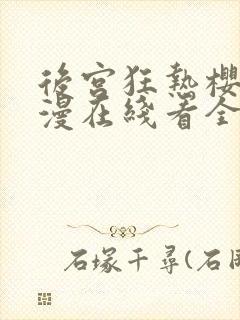 後宮狂熱櫻
漫在綫看全
石塚千尋(石岡